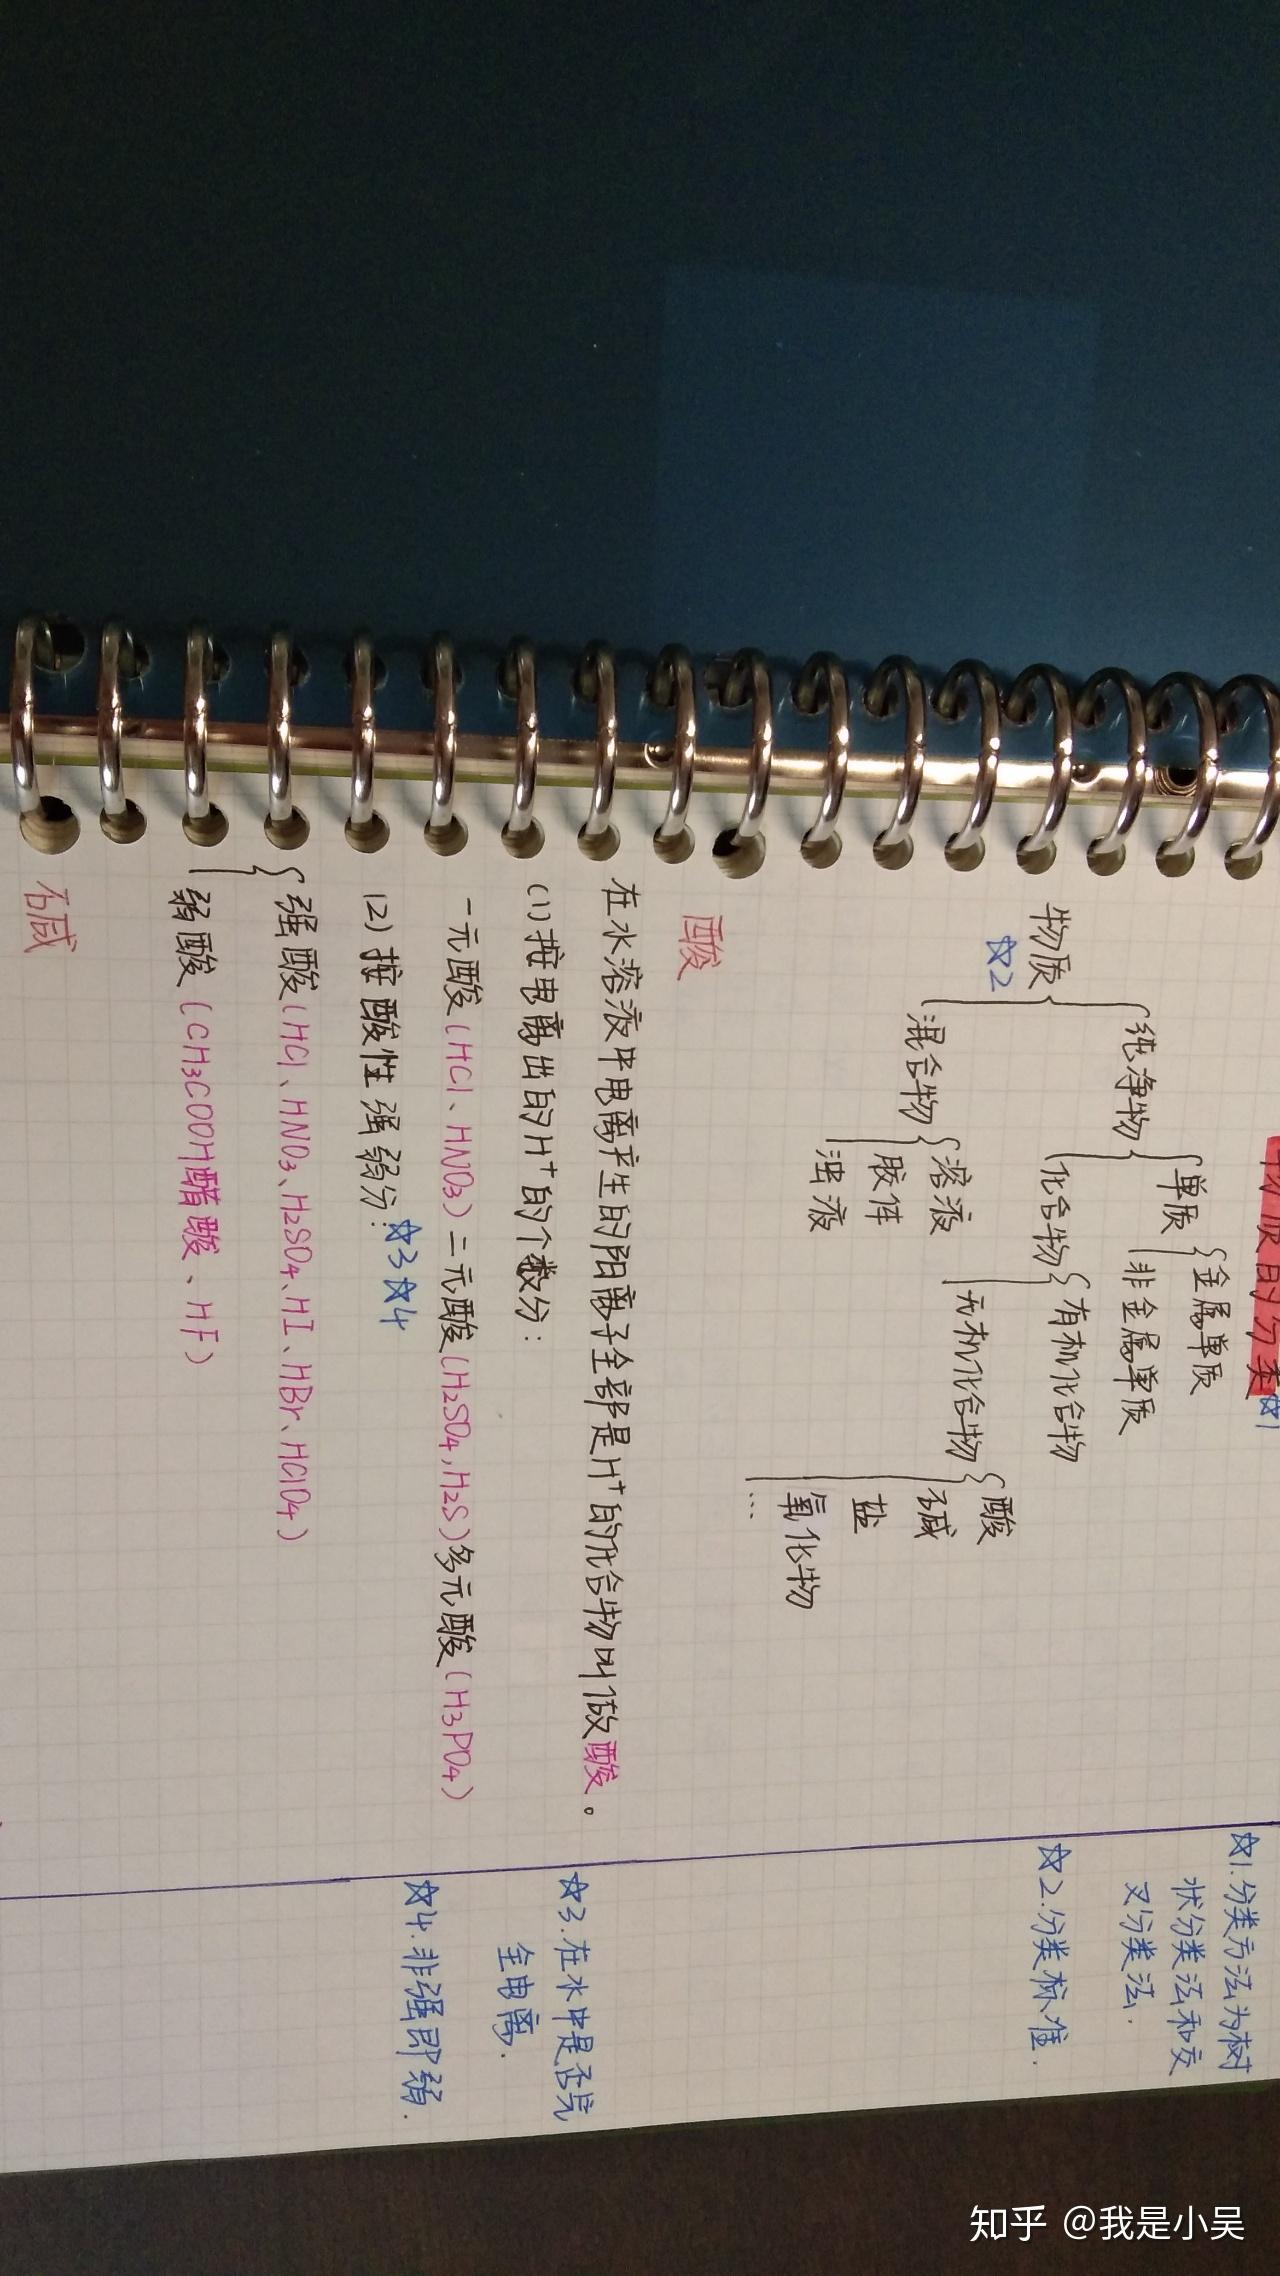 物质的分类☆1
金属单质
单质
非金属单质
纯净物
有机化合物
化合物
无机化合物
酸
碱
盐
氧化物
...
物质
☆2
混合物
溶液
胶体
浊液
酸
在水溶液中电离产生的阳离子全部是H⁺的化合物叫做酸。
(1)按电离出的H⁺的个数分：
一元酸(HCl、HNO₃)二元酸(H₂SO₄,H₂S)多元酸(H₃PO₄)
(2)按酸性强弱分：☆3☆4
强酸(HCl、HNO₃、H₂SO₄、HI、HBr、HClO₄)
弱酸(CH₃COOH醋酸、HF)
碱
☆1.分类方法为树
状分类法和交
叉分类法.
☆2.分类标准.
☆3.在水中是否完
全电离.
☆4.非强即弱.
知乎 @我是小吴